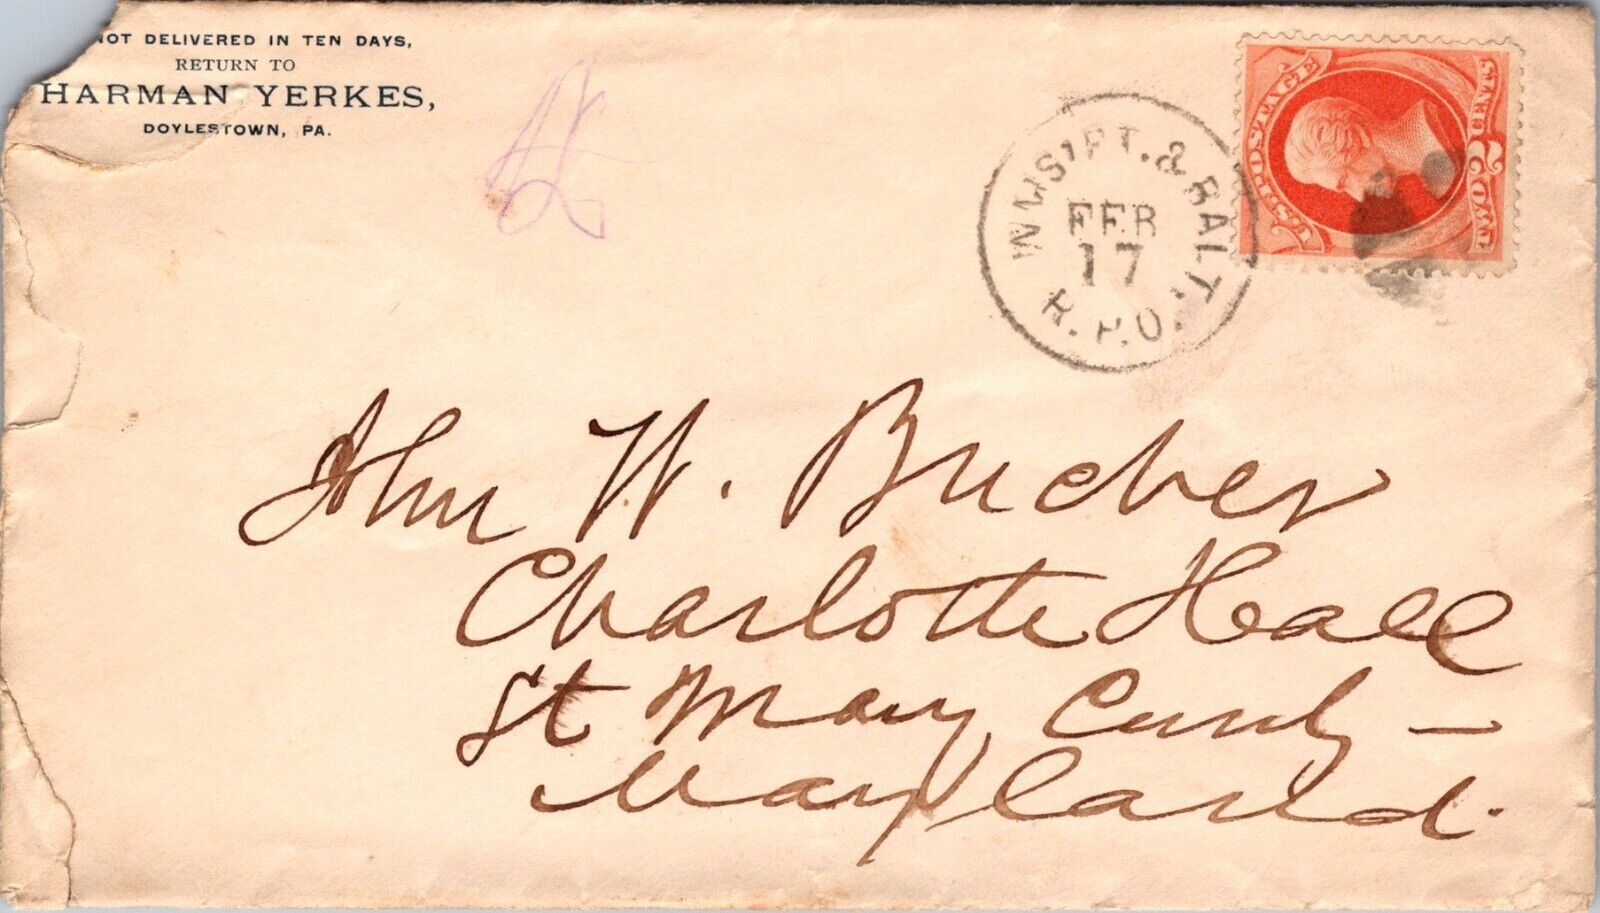 NOT DELIVERED IN TEN DAYS,
RETURN TO
HARMAN YERKES,
DOYLESTOWN, PA.
WMSPT. & BALT.
FEB
17
R.P.O.
U.S. POSTAGE
UNITED STATES
TWO
2
John W. Bucher
Charlotte Hall
St Mary County –
Maryland.